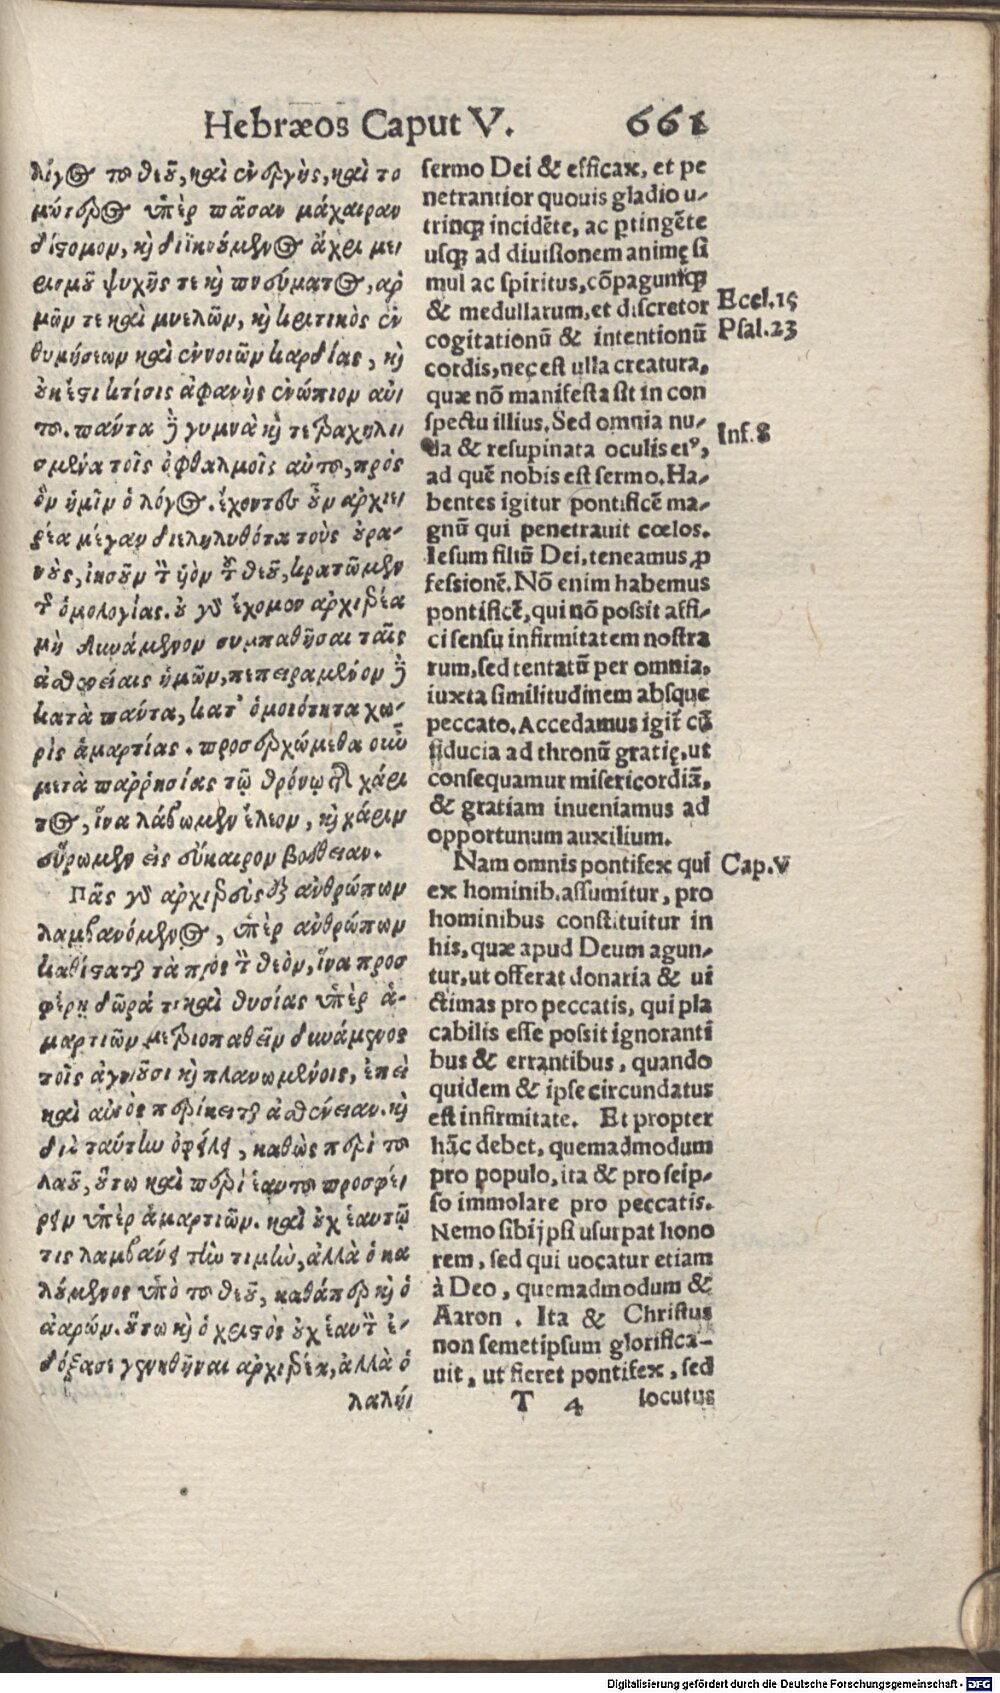 Hebræos Caput V. 661
λόγος τοῦ θεοῦ, καὶ ἐνεργὴς, καὶ το
μώτερος ὑπὲρ πᾶσαν μάχαιραν
δίστομον, καὶ διϊκνούμενος ἄχρι με
ρισμοῦ ψυχῆς τε καὶ πνεύματος, ἁρ
μῶν τε καὶ μυελῶν, καὶ κριτικὸς ἐν
θυμήσεων καὶ ἐννοιῶν καρδίας, καὶ
οὐκ ἔστι κτίσις ἀφανὴς ἐνώπιον αὐ
τοῦ. πάντα δὲ γυμνὰ καὶ τετραχηλι
σμένα τοῖς ὀφθαλμοῖς αὐτοῦ, πρὸς
ὃν ἡμῖν ὁ λόγος. ἔχοντες οὖν ἀρχιε
ρέα μέγαν διεληλυθότα τοὺς οὐρα-
νοὺς, ἰησοῦν τὸν ὑὸν τοῦ θεοῦ, κρατῶμεν
τῆς ὁμολογίας. οὐ γὰρ ἔχομεν ἀρχιερέα
μὴ δυνάμενον συμπαθῆσαι ταῖς
ἀσθενείαις ἡμῶν, πεπειραμένον δὲ
κατὰ πάντα, κατ' ὁμοιότητα χω-
ρὶς ἁμαρτίας. προσερχώμεθα οὖν
μετὰ παῤῥησίας τῷ θρόνῳ τῆς χάρι
τος, ἵνα λάβωμεν ἔλεον, καὶ χάριν
εὕρωμεν εἰς εὔκαιρον βοήθειαν.
Πᾶς γὰρ ἀρχιερεὺς ἐξ ἀνθρώπων
λαμβανόμενος, ὑπὲρ ἀνθρώπων
καθίσταται τὰ πρὸς τὸν θεὸν, ἵνα προσ
φέρῃ δῶρά τε καὶ θυσίας ὑπὲρ ἁ-
μαρτιῶν μετριοπαθεῖν δυνάμενος
τοῖς ἀγνοοῦσι καὶ πλανωμένοις, ἐπεὶ
καὶ αὐτὸς περίκειται ἀσθένειαν. καὶ
διὰ ταύτην ὀφείλει, καθὼς περὶ τοῦ
λαοῦ, οὕτω καὶ περὶ ἑαυτοῦ προσφέ
ρειν ὑπὲρ ἁμαρτιῶν. καὶ οὐχ ἑαυτῷ
τις λαμβάνει τὴν τιμὴν, ἀλλὰ ὁ κα
λούμενος ὑπὸ τοῦ θεοῦ, καθάπερ καὶ ὁ
ἀαρών. οὕτω καὶ ὁ χριστὸς οὐχ ἑαυτὸν ἐ-
δόξασε γενηθῆναι ἀρχιερέα, ἀλλὰ ὁ
λαλήι
sermo Dei & efficax, et pe
netrantior quouis gladio u-
trinqꝫ incidẽte, ac ꝑtingẽte
usqꝫ ad diuisionem animę si
mul ac spiritus, cõpagumqꝫ
& medullarum, et discretor
cogitationũ & intentionũ
cordis, nec est ulla creatura,
quæ nõ manifesta sit in con
spectu illius. Sed omnia nu-
da & resupinata oculis eiꝰ,
ad quẽ nobis est sermo. Ha-
bentes igitur pontificẽ ma-
gnũ qui penetrauit cœlos.
Iesum filiũ Dei, teneamus ꝓ
fessionẽ. Nõ enim habemus
pontificẽ, qui nõ possit affi-
ci sensu infirmitatem nostra
rum, sed tentatũ per omnia,
iuxta similitudinem absque
peccato. Accedamus igit̃ cũ
fiducia ad thronũ gratię, ut
consequamur misericordiã,
& gratiam inueniamus ad
opportunum auxilium.
Nam omnis pontifex qui
ex hominib. assumitur, pro
hominibus constituitur in
his, quæ apud Deum agun-
tur, ut offerat donaria & ui
ctimas pro peccatis, qui pla
cabilis esse possit ignoranti
bus & errantibus, quando
quidem & ipse circundatus
est infirmitate. Et propter
hãc debet, quemadmodum
pro populo, ita & pro seip-
so immolare pro peccatis.
Nemo sibijpsi usurpat hono
rem, sed qui uocatur etiam
à Deo, quemadmodum &
Aaron. Ita & Christus
non semetipsum glorifica-
uit, ut fieret pontifex, sed
T 4 locutus
Eccl. 15
Psal. 23
Inf. 8
Cap. V
Digitalisierung gefördert durch die Deutsche Forschungsgemeinschaft - DFG